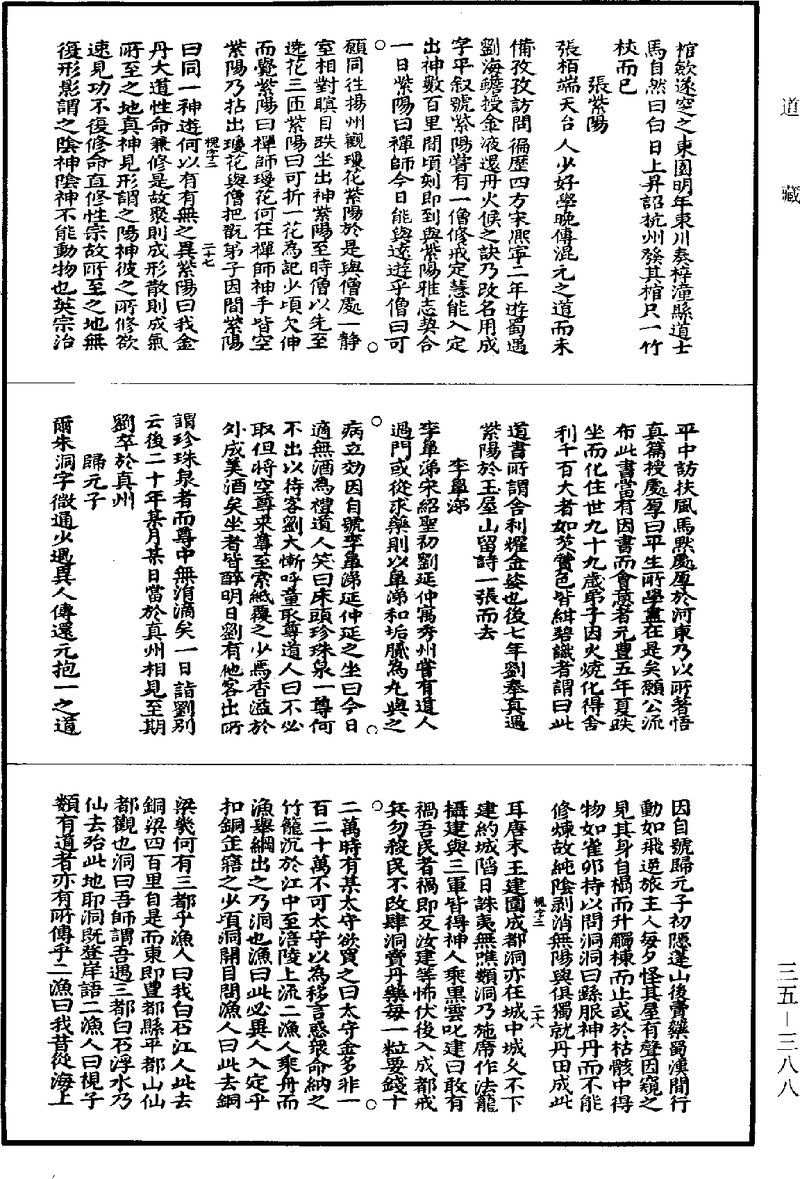 道藏
三五－三八八
棺歘遂空之東園明年東川奏梓潼縣道士
馬自然曰白日上昇詔杭州發其棺只一竹
杖而已
張紫陽
張栢端天台人少好學晚傳混元之道而未
備孜孜訪問徧歷四方宋熈寧二年遊蜀遇
劉海蟾授金液還丹火候之訣乃改名用成
字平叔號紫陽嘗有一僧修戒定慧能入定
出神數百里間頃刻即到與紫陽雅志契合
一日紫陽曰禪師今日能與遠遊乎僧曰可
願同往揚州觀瓊花紫陽於是與僧處一靜
室相對瞑目趺坐出神紫陽至時僧以先至
遶花三匝紫陽曰可折一花為記少頃欠伸
而覺紫陽曰禪師瓊花何在禪師神手皆空
紫陽乃拈出瓊花與僧把翫弟子因問紫陽
槐十三　二十七
曰同一神遊何以有有無之異紫陽曰我金
丹大道性命兼修是故聚則成形散則成氣
所至之地真神見形謂之陽神彼之所修欲
速見功不復修命直修性宗故所至之地無
復形影謂之陰神陰神不能動物也英宗治
平中訪扶風馬黙處厚於河東乃以所著悟
真篇授處厚曰平生所學盡在是矣願公流
布此書當有因書而會意者元豐五年夏趺
坐而化住世九十九歲弟子因火燒化得舍
利千百大者如芡實色皆紺碧識者謂曰此
道書所謂舍利耀金姿也後七年劉奉真遇
紫陽於王屋山留詩一張而去
李鼻涕
李鼻涕宋紹聖初劉延仲寓秀州嘗有道人
過門或從求藥則以鼻涕和垢膩為丸與之
病立効因自號李鼻涕延仲延之坐曰今日
適無酒為禮道人笑曰床頭珍珠泉一尊何
不出以待客劉大慚呼童取尊道人曰不必
取但將空尊來尊至索紙覆之少焉香溢於
外成美酒矣坐者皆醉明日劉有他客出所
謂珍珠泉者而尊中無涓滴矣一日詣劉別
云後二十年某月某日當於真州相見至期
劉卒於真州
歸元子
爾朱洞字微通少遇異人傳還元抱一之道
因自號歸元子初隱蓬山後賣藥蜀漢間行
動如飛逆旅主人每夕怪其屋有聲因窺之
見其身自榻而升觸棟而止或於枯骸中得
物如雀卵持以問洞洞曰繇服神丹而不能
修煉故純陰剥消無陽與俱獨就丹田成此
槐十三　二十八
耳唐末王建圍成都洞亦在城中城久不下
建約城䧟日誅夷無噍類洞乃施席作法龍
攝建與三軍皆得神人乘黒雲叱建曰敢有
禍吾民者禍即及汝建等怖伏後入成都戒
兵勿殺民不改肆洞賣丹藥每一粒要錢十
二萬時有某太守欲買之曰太守金多非一
百二十萬不可太守以為移言惑衆命納之
竹籠沉於江中至涪陵上流二漁人乘舟而
漁舉網出之乃洞也漁曰此必異人入定乎
扣銅缶寤之少頃洞開目問漁人曰此去銅
梁幾何有三都乎漁人曰我白石江人此去
銅梁四百里自是而東即豐都縣平都山仙
都觀也洞曰吾師謂吾遇三都白石浮水乃
仙去殆此地耶洞既登岸語二漁人曰視子
類有道者亦有所傳乎二漁曰我昔從海上